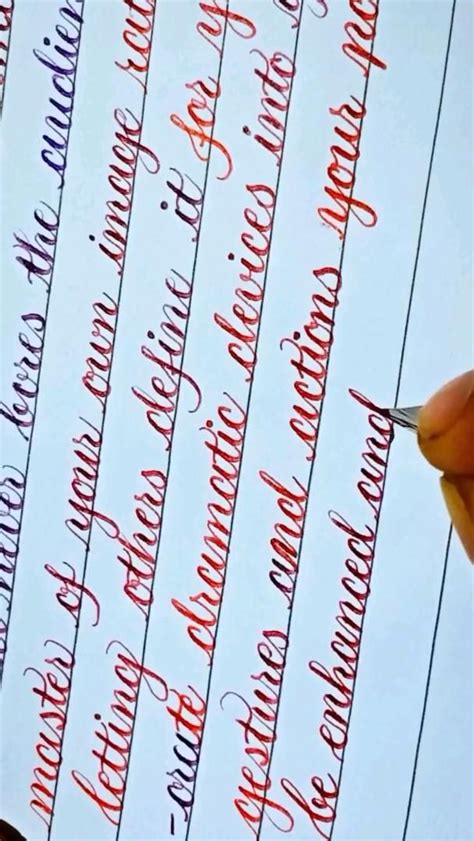 never bores the audien
master of your own image rat
letting others define it for y
-orate dramatic devices into
gestures and actions your po
be enhanced and